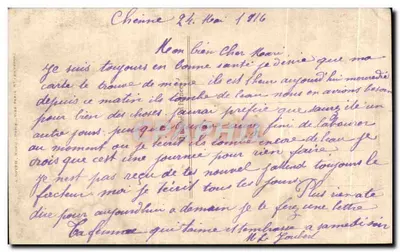 Chênne 24 Mai 1916
Mon bien cher Mari
Je suis toujours en bonne santé je désire que ma
carte te trouve de même il est 1 heur aujourd'hui mercredi
depuis ce matin ils tombe de l'eau nous en avions besoin
pour bien des choses jaurai préféré que saurez été un
autre jours fini de labourer
au moment que je técrit ils tombe encore de l'eau je
crois que cest une journée pour rien faire
je nest pas reçue de tes nouvel jattend toujours le
facteur moi je técrit tous les jours
Plus rien a te
dire pour aujourdhui a demain je te fez une lettre
Ta femme que taime et tembrasse a samedi soir